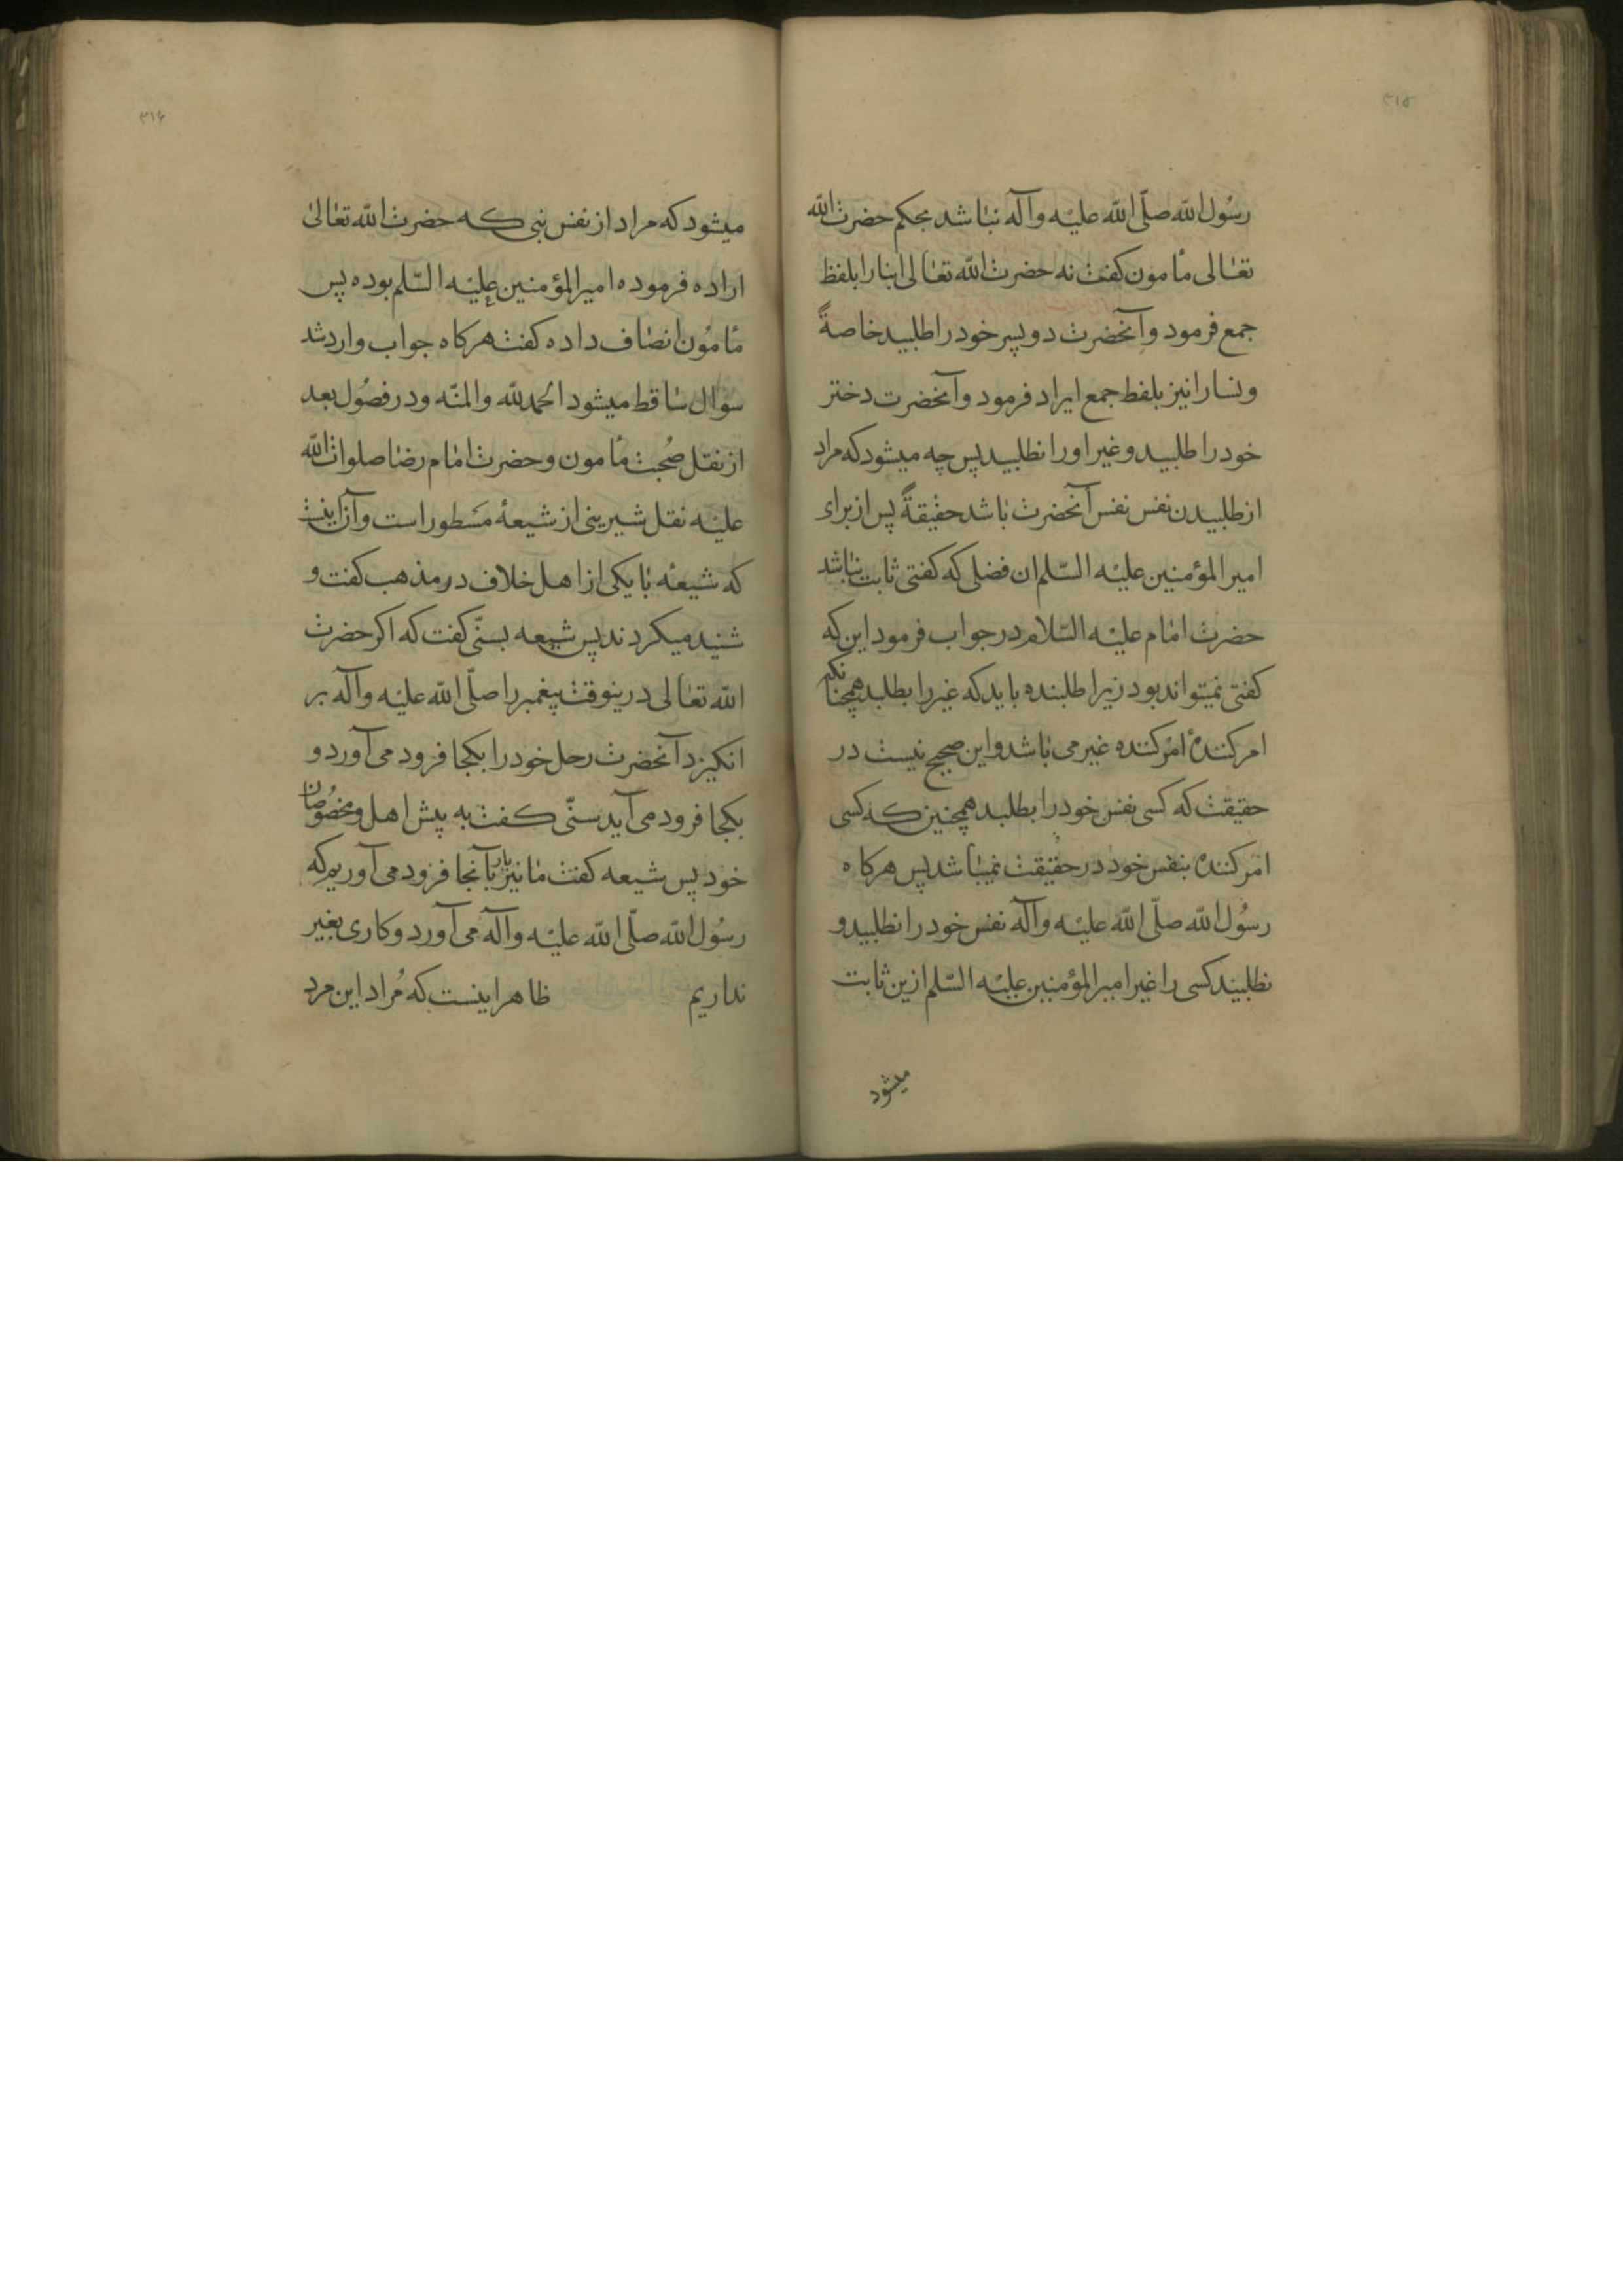 ۳۱۵
رسُول الله صلّی الله علیْه وآله نباشد بحکم حضرت الله
تعالی مأمون کفت نه حضرت الله تعالی ابنا را بلفظ
جمع فرمود وآنحضرت دو پسر خود را طلبید خاصةً
ونسا را نیز بلفظ جمع ایراد فرمود وآنحضرت دختر
خود را طلبید و غیر او را نطلبید پس چه میشود که مراد
از طلبیدن نفس نفس آنحضرت باشد حقیقةً پس از برای
امیر المؤمنین علیْه السّلم ان فضلی که کفتی ثابت نباشد
حضرت امام علیْه السّلام در جواب فرمود این که
کفتی نمیتواند بود زیرا طلبنده باید که غیر را بطلبد همچنانکه
امر کنندهٔ امر کننده غیر می باشد و این صحیح نیست در
حقیقت که کسی نفس خود را بطلبد همچنین که کسی
امر کننده بنفس خود در حقیقت نمیباشد پس هرکاه
رسُول الله صلّی الله علیْه وآله نفس خود را نطلبید و
نطلبید کسی را غیر امیر المؤمنین علیْه السّلم ازین ثابت
میشود
۳۱۶
میشود که مراد از نفس نبی که حضرت الله تعالیٰ
اراده فرموده امیر المؤمنین علیْه السّلم بوده پس
مأمُون انصاف داده کفت هرکاه جواب وارد شد
سؤال ساقط میشود الحمد لله والمنّه ودر فصُول بعد
از نقل صُحبت مأمون وحضرت امام رضا صلوات الله
علیْه نقل شیرینی از شیعهٔ مسَطور است وآن اینست
که شیعهٔ با یکی از اهل خلاف در مذهب کفت و
شنید میکردند پس شیعه بسنّی کفت که اکر حضرت
الله تعالی درینوقت پیغمبر را صلّی الله علیْه وآله بر
انکیزد آنحضرت رحل خود را بکجا فرود می آورد و
بکجا فرود می آید سنّی کفت به پیش اهل و مخصُوصان
خود پس شیعه کفت ما نیز بار بآنجا فرود می آوریم که
رسُول الله صلّی الله علیْه وآله می آورد وکاری بغیر
نداریم ظاهر اینست که مُراد این مرد